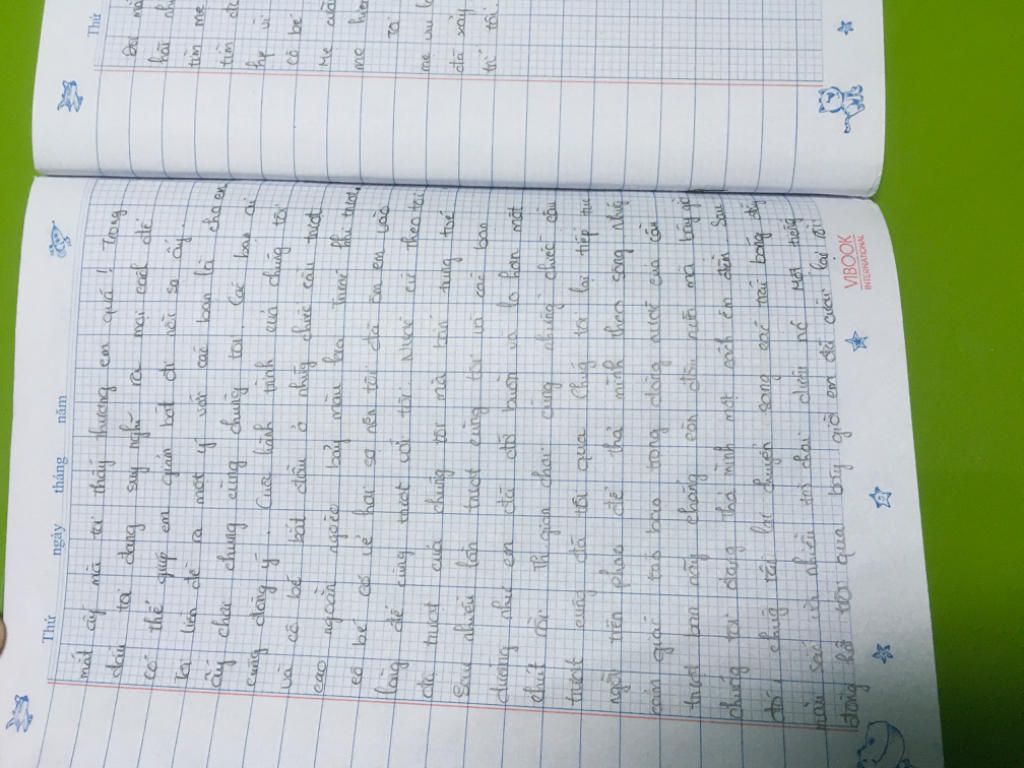 Thứ ngày tháng năm
mắt ấy mà tôi thấy thương em quá! Trong
đầu tôi đang suy nghĩ ra mọi cách để
có thể giúp em giảm bớt đi nỗi sợ ấy.
Tôi liền đề ra một ý với các bạn là cho em
ấy chơi chung cùng chúng tôi. Các bạn ai
cũng đồng ý. Cuộc hành trình của chúng tôi
và cô bé bắt đầu ở những chiếc cầu trượt
cao ngoằn ngoèo bảy màu kia. Trước khi trượt,
cô bé có vẻ hơi sợ nên tôi đã ôm em vào
lòng để cùng trượt với tôi. Nước cứ theo
đà trượt của chúng tôi mà bắn tung toé
Sau nhiều lần trượt cùng tôi và các bạn
dường như em đã đỡ buồn và lo hơn một
chút rồi. Thời gian chơi cùng những chiếc cầu
trượt cũng đã trôi qua. Chúng tôi lại tiếp tục
ngồi trên phao để thả mình theo sóng nước
cảm giác trôi bao trong dòng nước của cầu
trượt ban nãy chẳng còn đâu nữa mà bây giờ
chúng tôi đang thả mình một cách êm đềm. Sau
đó, chúng tôi lại chuyển sang các trái bóng đầy
màu sắc với nhiều trò chơi dưới nó. Một tiếng
đồng hồ trôi qua bây giờ em đã cười lại rồi.
VIBOOK
INTERNATIONAL
Thứ
mẹ
tìm
cô bé
Mẹ
mẹ
Tô
mẹ
đã xảy
trí tôi.